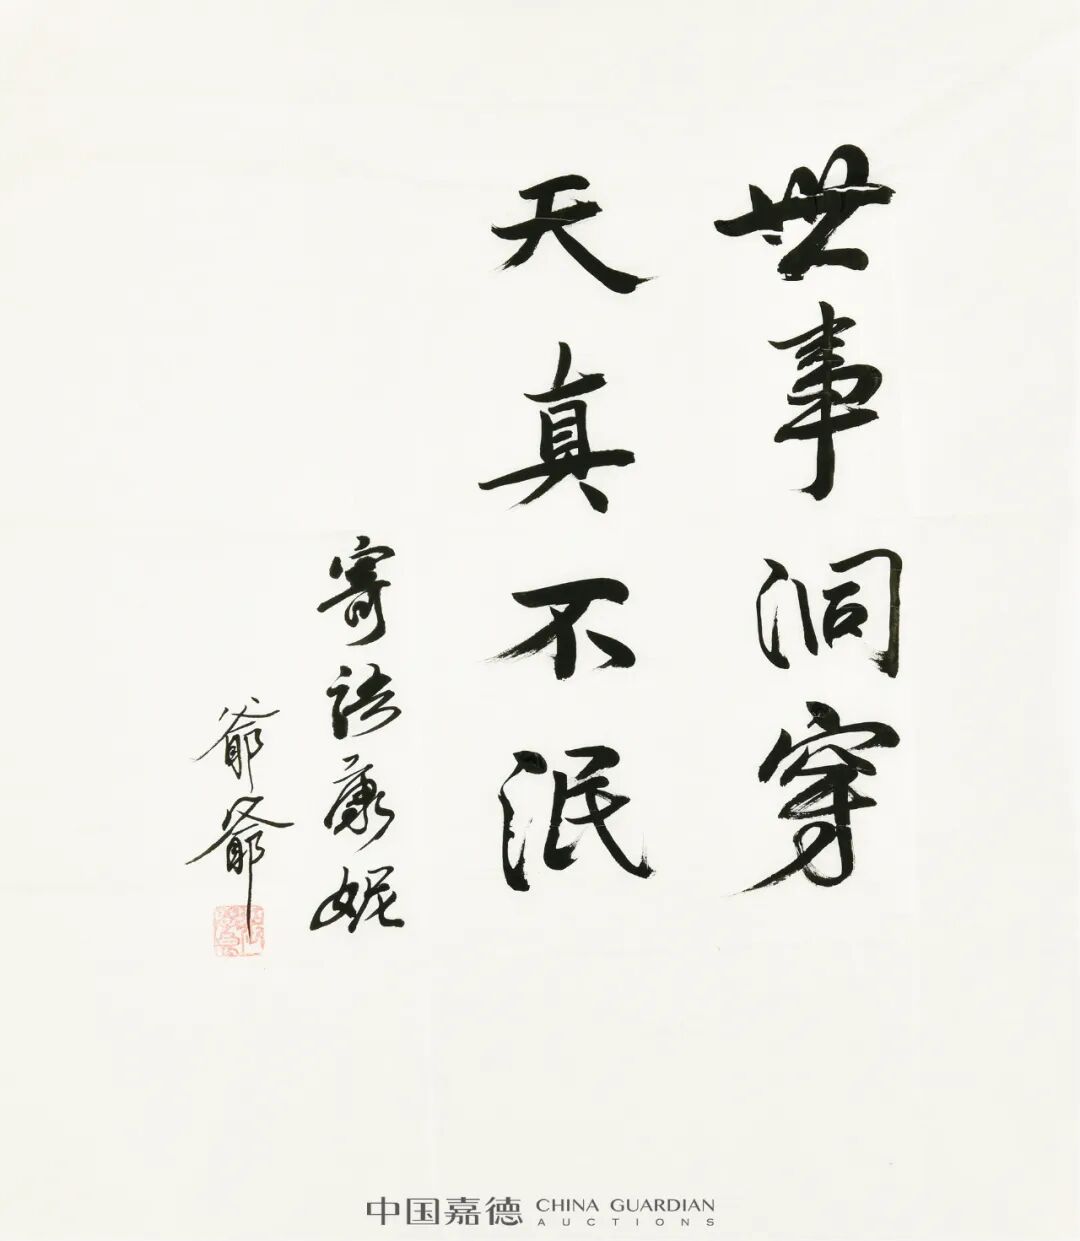 世事洞穿
天真不泯
寄语康妮
爷爷
中国嘉德 CHINA GUARDIAN
AUCTIONS